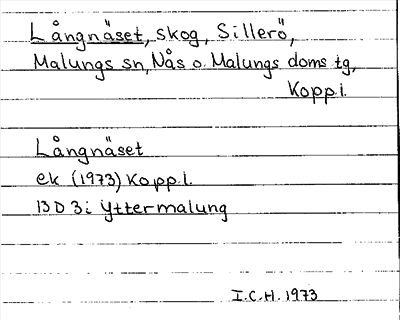 Långnäset, skog, Sillerö,
Malungs sn, Nås o. Malungs doms tg,
Koppl.
Långnäset
ek (1973) Koppl.
13 D 3i Yttermalung
I.C.H. 1973